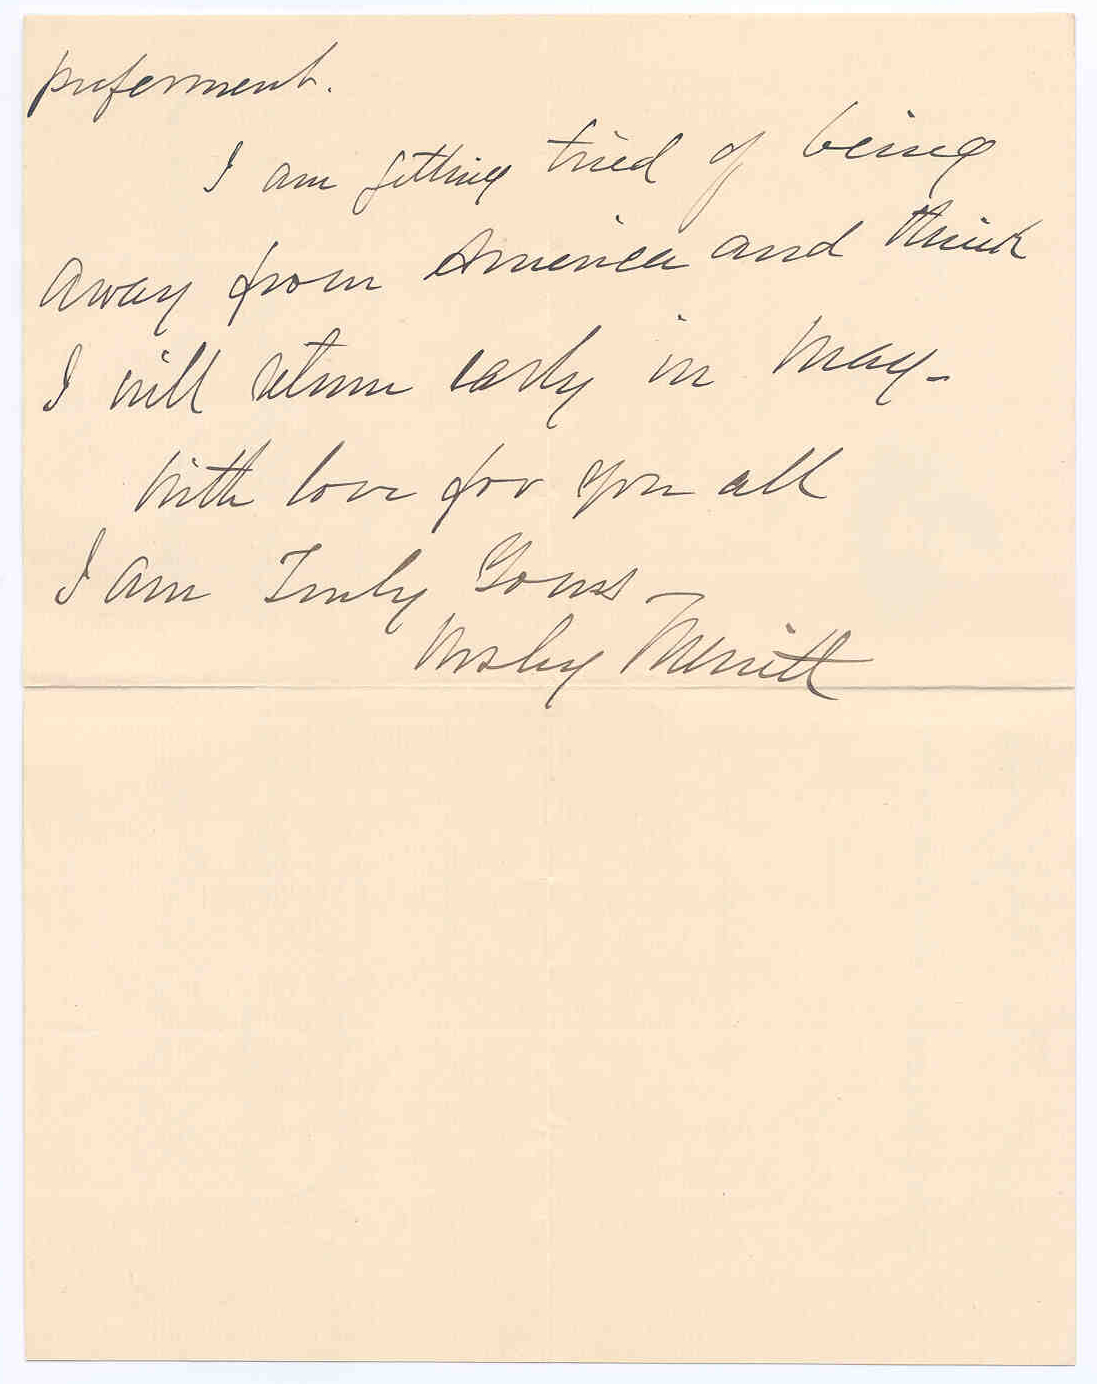 preferment.
I am getting tired of being
away from America and think
I will return early in May -
With love for you all
I am Truly Yours -
Wesley Merritt